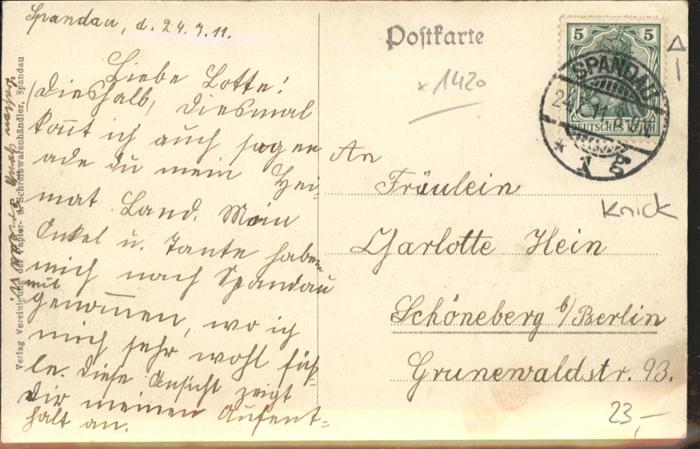 Spandau, d. 24.7.11.
Liebe Lotte!
Dieshalb, diesmal
könnt ich auch sagen
ade du mein Hei-
mat Land. Mein
Onkel u. Tante haben
mich nach Spandau
mit
genommen, wo ich
mich sehr wohl füh-
le. Diese Ansicht zeigt
dir meinen Aufent-
halt an.
Verlag Vereinigung der Papier- u. Schreibwarenhändler, Spandau
Postkarte
x 1420
5 5
DEUTSCHES REICH
SPANDAU
An
Fräulein
Knick
Charlotte Hein
Schöneberg b/Berlin
Grunewaldstr. 93.
23,-